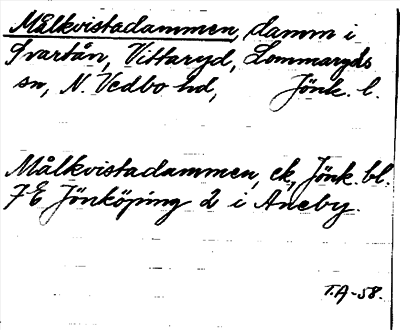 Målkvistadammen, damm i
Svartån, Vittaryd, Lommaryds
sn, N. Vedbo hd, Jönk. l.
Målkvistadammen, ek, Jönk. bl.
7E Jönköping 2 i Aneby.
T.A-58.